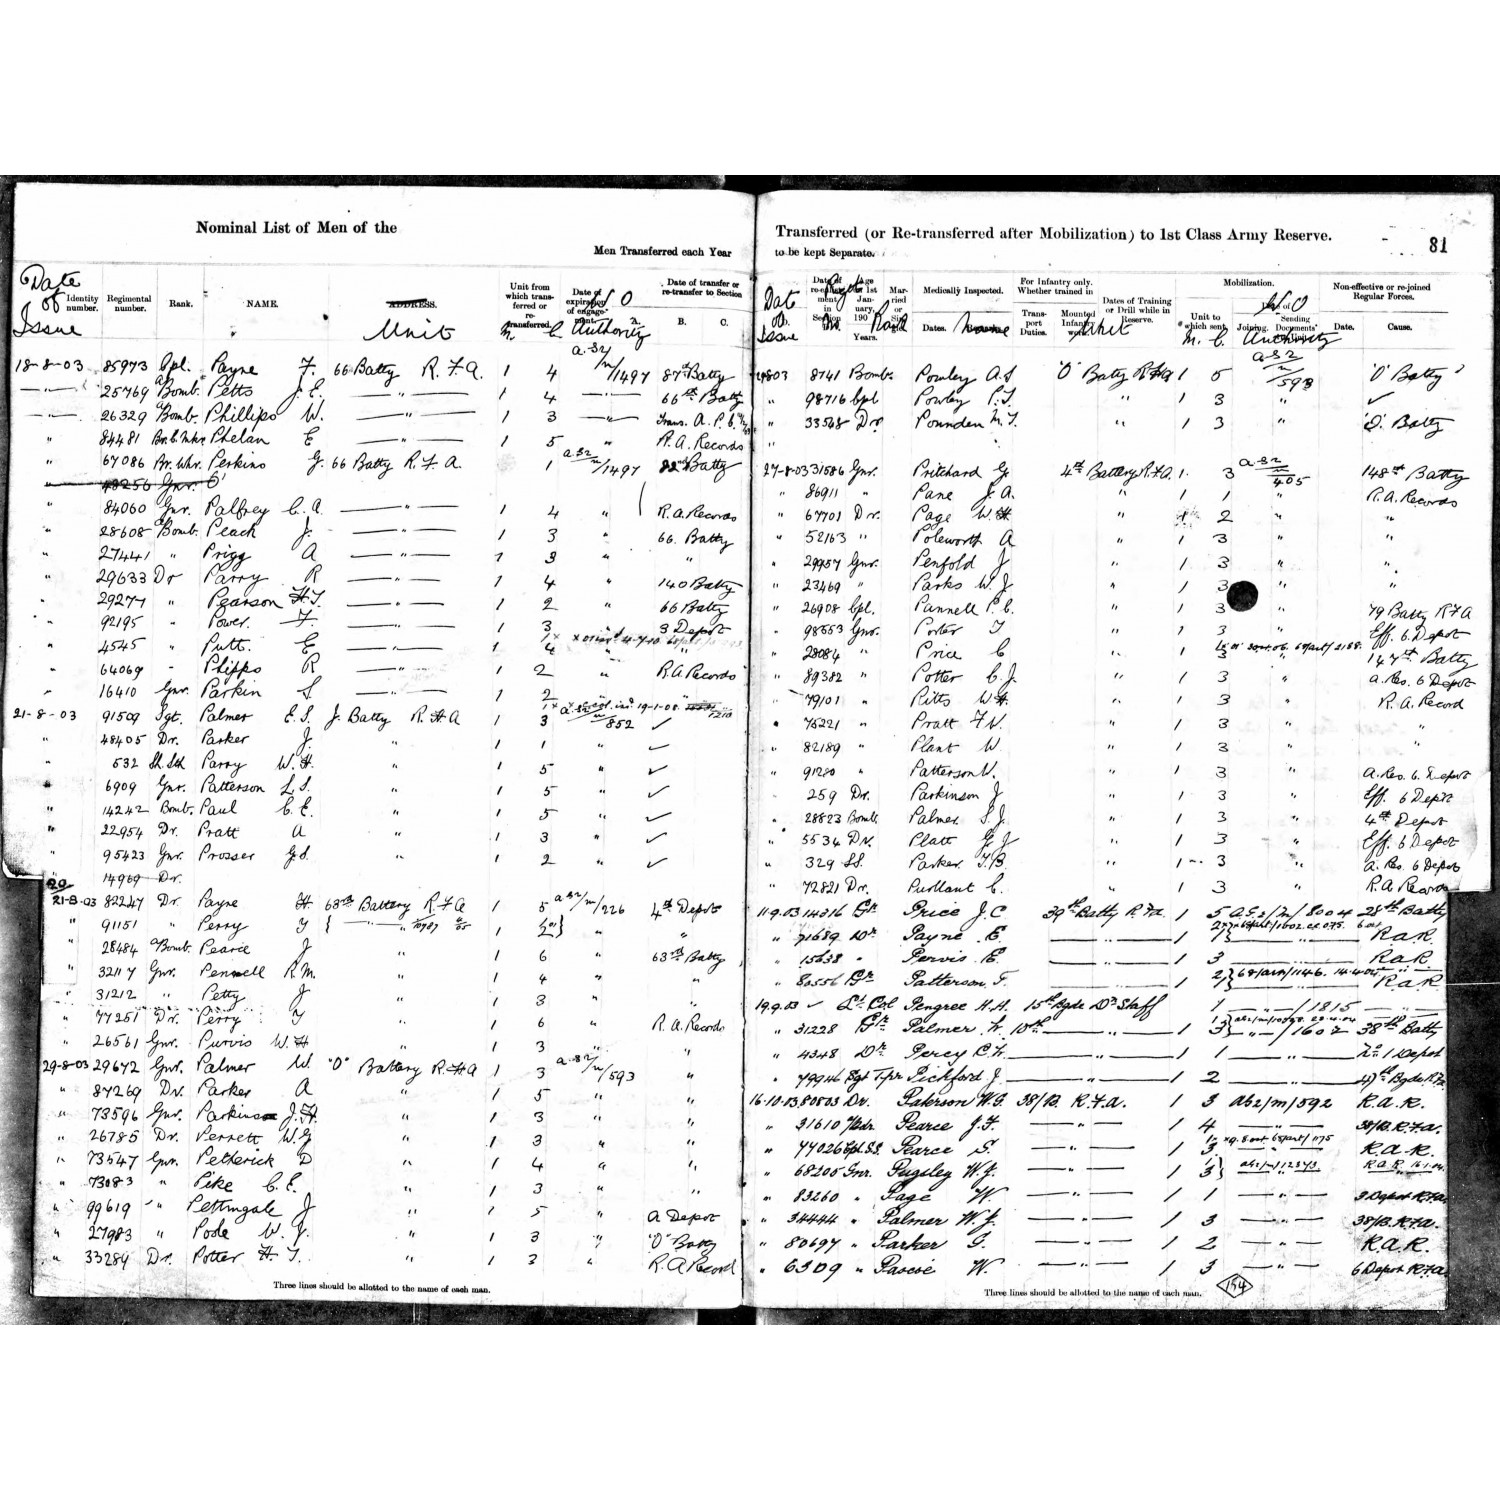 Nominal List of Men of the
Men Transferred each Year
Date of Issue
Identity number.
Regimental number.
Rank.
NAME.
ADDRESS.
Unit
Unit from which transferred or re-transferred.
M. C.
Date of expiration of engagement.
W O Authority
Date of transfer or re-transfer to Section
B. C.
18-8-03 85973 Cpl. Payne F. 66 Batty R.F.A. 1 4 A.G.2/M/1497 87th Batty
—"— 25769 a/Bomb. Petts J.E. —"— 1 4 —"— 66th Batty
—"— 26329 a/Bomb. Phillips W. —"— 1 3 — Trans. A.P.C.
" 84481 Phelan E —"— 1 5 " R.A. Records
" 67086 Br. Whr. Perkins G. 66 Batty R.F.A. 1 A.G.2/M/1497 Batty
" 48256 Gnr.
" 84060 Gnr. Palfrey C.A. —"— 1 4 " R.A. Records
" 28608 a/Bomb. Peach J. —"— 1 3 " 66. Batty
" 27441 " Prigg A —"— 1 3 " "
" 29633 Dr Parry R —"— 1 4 " 140 Batty
" 29277 " Pearson H.T. —"— 1 2 " 66 Batty
" 92195 " Power. F. —"— 1 3 3 Depot
" 4545 " Putt. E —"— 4
" 64069 " Phipps R —"— 1 2 " R.A. Records
" 16410 Gnr. Parkin S —"— 2 "
21-8-03 91509 Sgt. Palmer E.S. J. Batty R.H.A 1 3 A.G.2/M/852 ✓
" 48405 Dr. Parker J. " 1 1 " ✓
" 532 Sh. Sth Parry W.H. " 1 5 " ✓
" 6909 Gnr. Patterson L.S. " 1 5 " ✓
" 14242 Bomb. Paul C.E. " 1 5 " ✓
" 22954 Dr. Pratt A " 1 3 " ✓
" 95423 Gnr. Prosser G.S. " 1 2 " ✓
" 14969 Dr.
21-8-03 82247 Dr. Payne H. 68th Battery R.F.A 1 5 A.G.2/M/226 4th Depot
" 91151 " Perry T " 1 "
" 28484 a/Bomb. Pearce J " 1 6 " 63rd Batty
" 32117 Gnr. Penwell R.M. " 1 4 " "
" 31212 " Petty J " 1 3 " "
" 77251 Dr. Perry T " 1 6 " R.A. Records
" 26561 Gnr. Purvis W.H " 1 3 " "
29-8-03 29672 Gnr. Palmer W. "O" Battery R.H.A 1 3 A.G.2/M/593 "
" 87269 Dr. Parker A " 1 5 " "
" 73596 Gnr. Parkinson J.H. " 1 3 " "
" 26785 Dr. Perrett W.G " 1 3 " "
" 73547 Gnr. Petherick D " 1 4 " "
" 73083 " Pike C.E. " 1 3 " "
" 99619 " Pettingale J " 1 5 "  A Depot
" 27983 " Poole W.J. " 1 3 " "O" Batty
" 33289 Dr. Potter H.T. " 1 3 " R.A Record
Three lines should be allotted to the name of each man.
Transferred (or Re-transferred after Mobilization) to 1st Class Army Reserve.
81
to be kept Separate.
Date of Issue
Regtl No. Rank
Medically Inspected.
Dates. Name
For Infantry only. Whether trained in
Transport Duties.
Mounted Infantry work.
Dates of Training or Drill while in Reserve.
Unit
Mobilization.
Unit to which sent.
M. C.
Joining.
W O Authority
Sending Documents
Non-effective or rejoined Regular Forces.
Date. Cause.
8741 Bomb. Powley A.S "O" Batty R.H.A 1 5 A.G.2/M/593 "O" Batty
" 98716 Cpl Powley P.T. " 1 3 " ✓
" 33548 Dr. Pounden M.T. " 1 3 " "O". Batty
27-8-03 31586 Gnr. Pritchard G 4th Battery R.F.A. 1 3 A.G.2/M/405 148th Batty
" 86911 " Pane J.A. " 1 1 " R.A. Records
" 67701 Dr. Page W.H. " 2 " "
" 52163 " Poleworth A " 1 3 " "
" 29957 Gnr. Penfold J " 1 3 " "
" 23469 " Parks W.J " 1 3 " "
" 26908 Cpl. Pannell P.C. " 1 3 " 79 Batty R.F.A
" 98553 Gnr. Porter T " 1 3 " Eff. 6 Depot
" 28084 " Price C " 3 147th Batty
" 89382 " Potter C.J. " 1 3 " A. Res. 6 Depot
" 79101 " Pitts W.H. " 1 3 " R.A. Record
" 75221 " Pratt F.W. " 1 3 " "
" 82189 " Plant W. " 1 3 " "
" 91280 " Patterson W. " 1 3 " A. Res. 6. Depot
" 259 Dr. Parkinson J " 1 3 " Eff. 6 Depot
" 28823 Bomb. Palmer S.J. " 1 3 " 4th Depot
" 5534 Dr. Platt G.J " 1 3 " Eff. 6 Depot
" 329 SS. Parker. T.B. " 1 3 " A. Res. 6 Depot
" 72821 Dr. Purllant C. " 1 3 " R.A Records
11.9.03 14316 Gr. Price J.C 39th Batty R.F.A. 1 5 A.G.2/M/8004 28th Batty
" 71689 Dr Payne E. —"— 1 R.A.R.
" 15638 " Pervis. E. —"— 1 3 —"— R.A.R.
" 80556 Gr Patterson. T. —"— 1 R.A.R
19.9.03 ✓ Lt. Col Pengree H.H. 15th Bgde Dn Staff 1 —"—/1815 —"—
" 31228 Gr. Palmer. W. 15th —"— 1 3 —"—/1607 38th Batty
" 4348 Dr Percy C.W. —"— 1 1 —"— No 1 Depot
" 79946 Sgt Tptr Pickford J. —"— 1 2 —"— 47th Bgde R.F.A
16-10-03 80503 Dr. Paterson W.G. 38/B. R.F.A. 1 3 AG2/M/592 R.A.R.
" 31610 Pearce J.F. —"— 1 4 —"— 38/B. R.F.A.
" 77026 Cpl. S.S. Pearce S. —"— 1 3 R.A.R.
" 68205 Gnr. Pugsley W.J. —"— 1 3
" 83260 " Page W. —"— 1 1 —"— 3 Depot R.F.A.
" 34444 " Palmer W.J. —"— 1 3 —"— 38/B. R.F.A.
" 80697 " Parker G. —"— 1 2 —"— R.A.R.
" 6309 " Pascoe W. —"— 1 3 —"— 6 Depot R.F.A.
194
Three lines should be allotted to the name of each man.